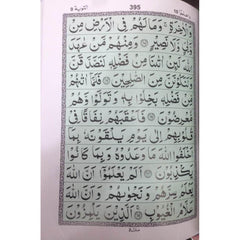 التوبة ٩ 395
الْاٰخِرَةِ ۚ وَمَا لَهُمْ فِى الْاَرْضِ مِنْ
وَّلِيٍّ وَّلَا نَصِيْرٍ وَمِنْهُمْ مَّنْ عٰهَدَ
اللّٰهَ لَئِنْ اٰتٰىنَا مِنْ فَضْلِهٖ لَنَصَّدَّقَنَّ
وَلَنَكُوْنَنَّ مِنَ الصّٰلِحِيْنَ فَلَمَّاۤ اٰتٰىهُمْ
مِّنْ فَضْلِهٖ بَخِلُوْا بِهٖ وَتَوَلَّوْا وَّهُمْ
مُّعْرِضُوْنَ فَاَعْقَبَهُمْ نِفَاقًا فِىْ
قُلُوْبِهِمْ اِلٰى يَوْمِ يَلْقَوْنَهٗ بِمَاۤ
اَخْلَفُوا اللّٰهَ مَا وَعَدُوْهُ وَبِمَا كَانُوْا
يَكْذِبُوْنَ اَلَمْ يَعْلَمُوْۤا اَنَّ اللّٰهَ
يَعْلَمُ سِرَّهُمْ وَنَجْوٰىهُمْ وَاَنَّ اللّٰهَ
عَلَّامُ الْغُيُوْبِ اَلَّذِيْنَ يَلْمِزُوْنَ